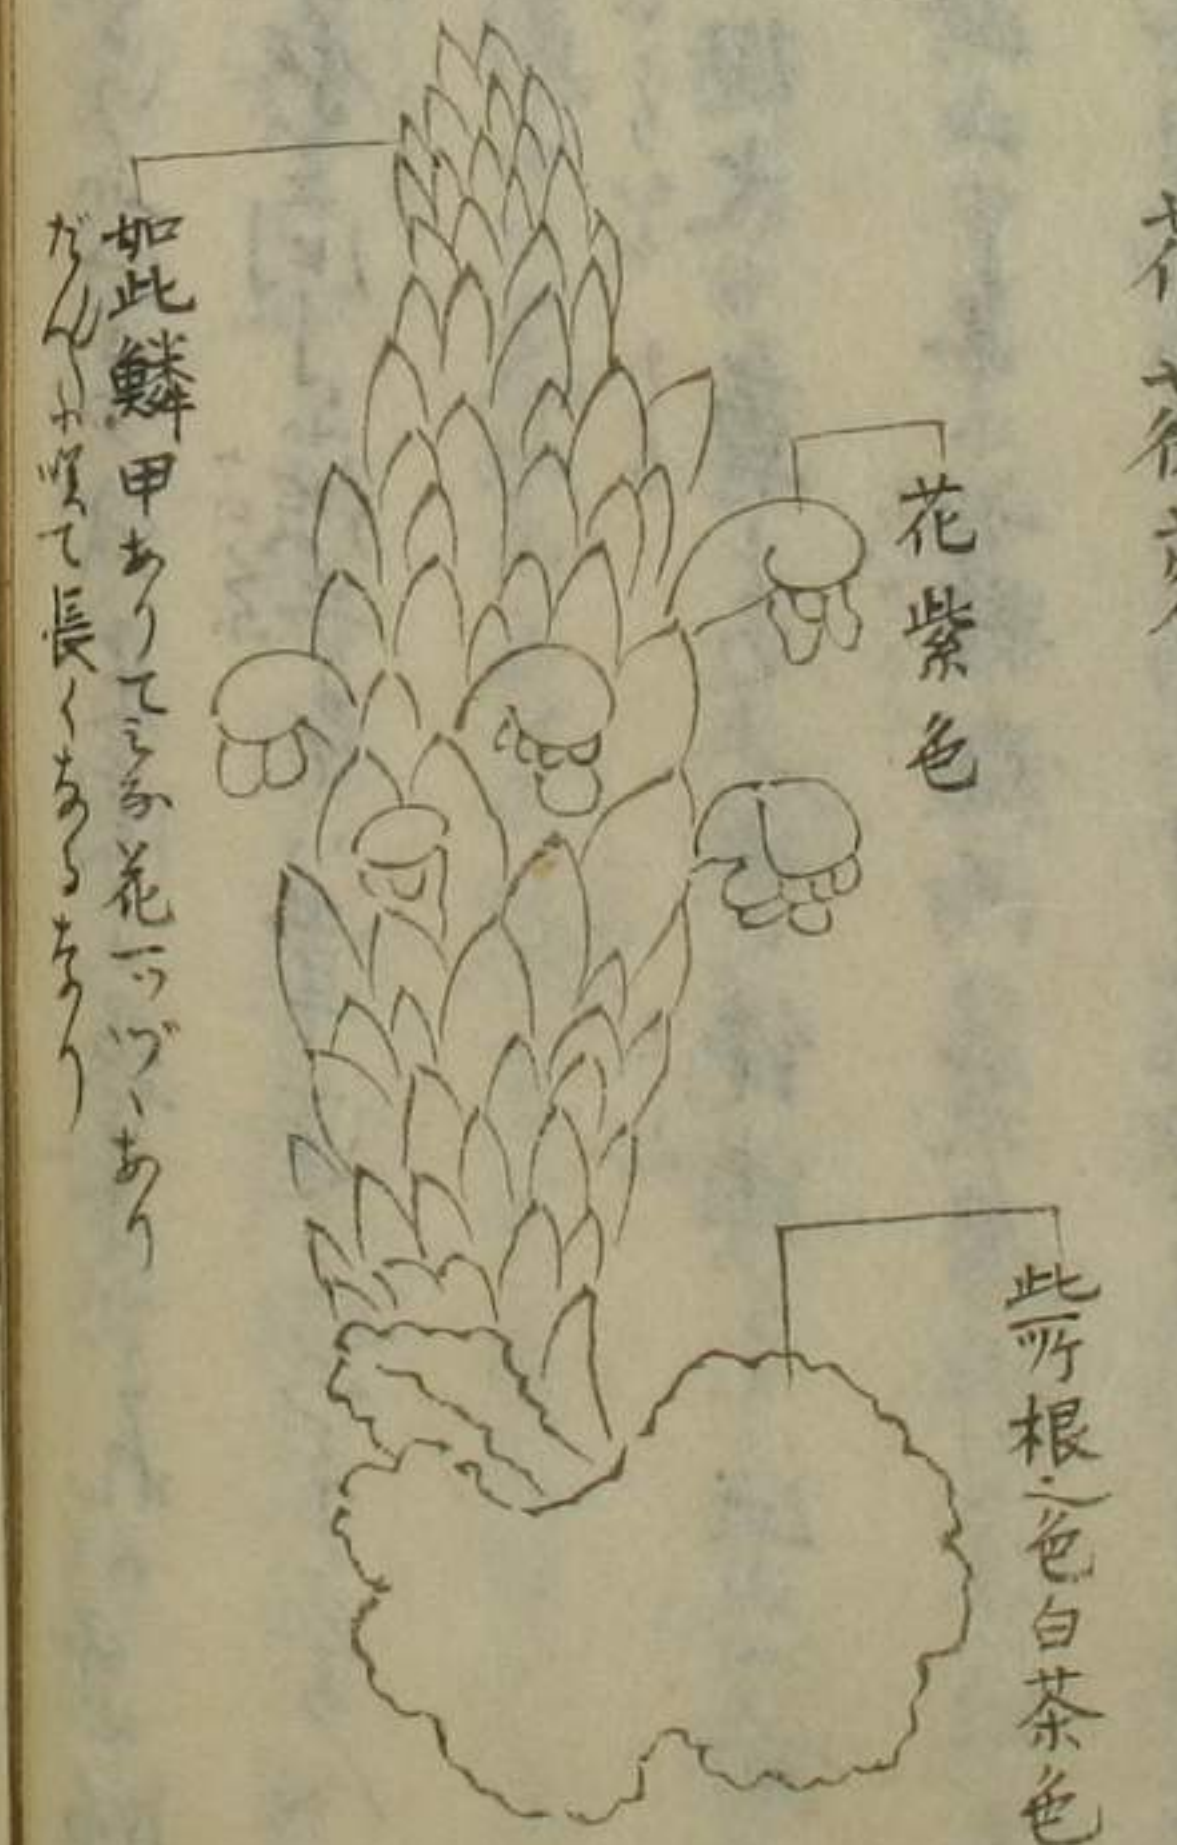 花紫色
此所根之色白茶色
如此鱗甲ありてミな花一ツヅヽあり
だん〱に咲て長くなるなり